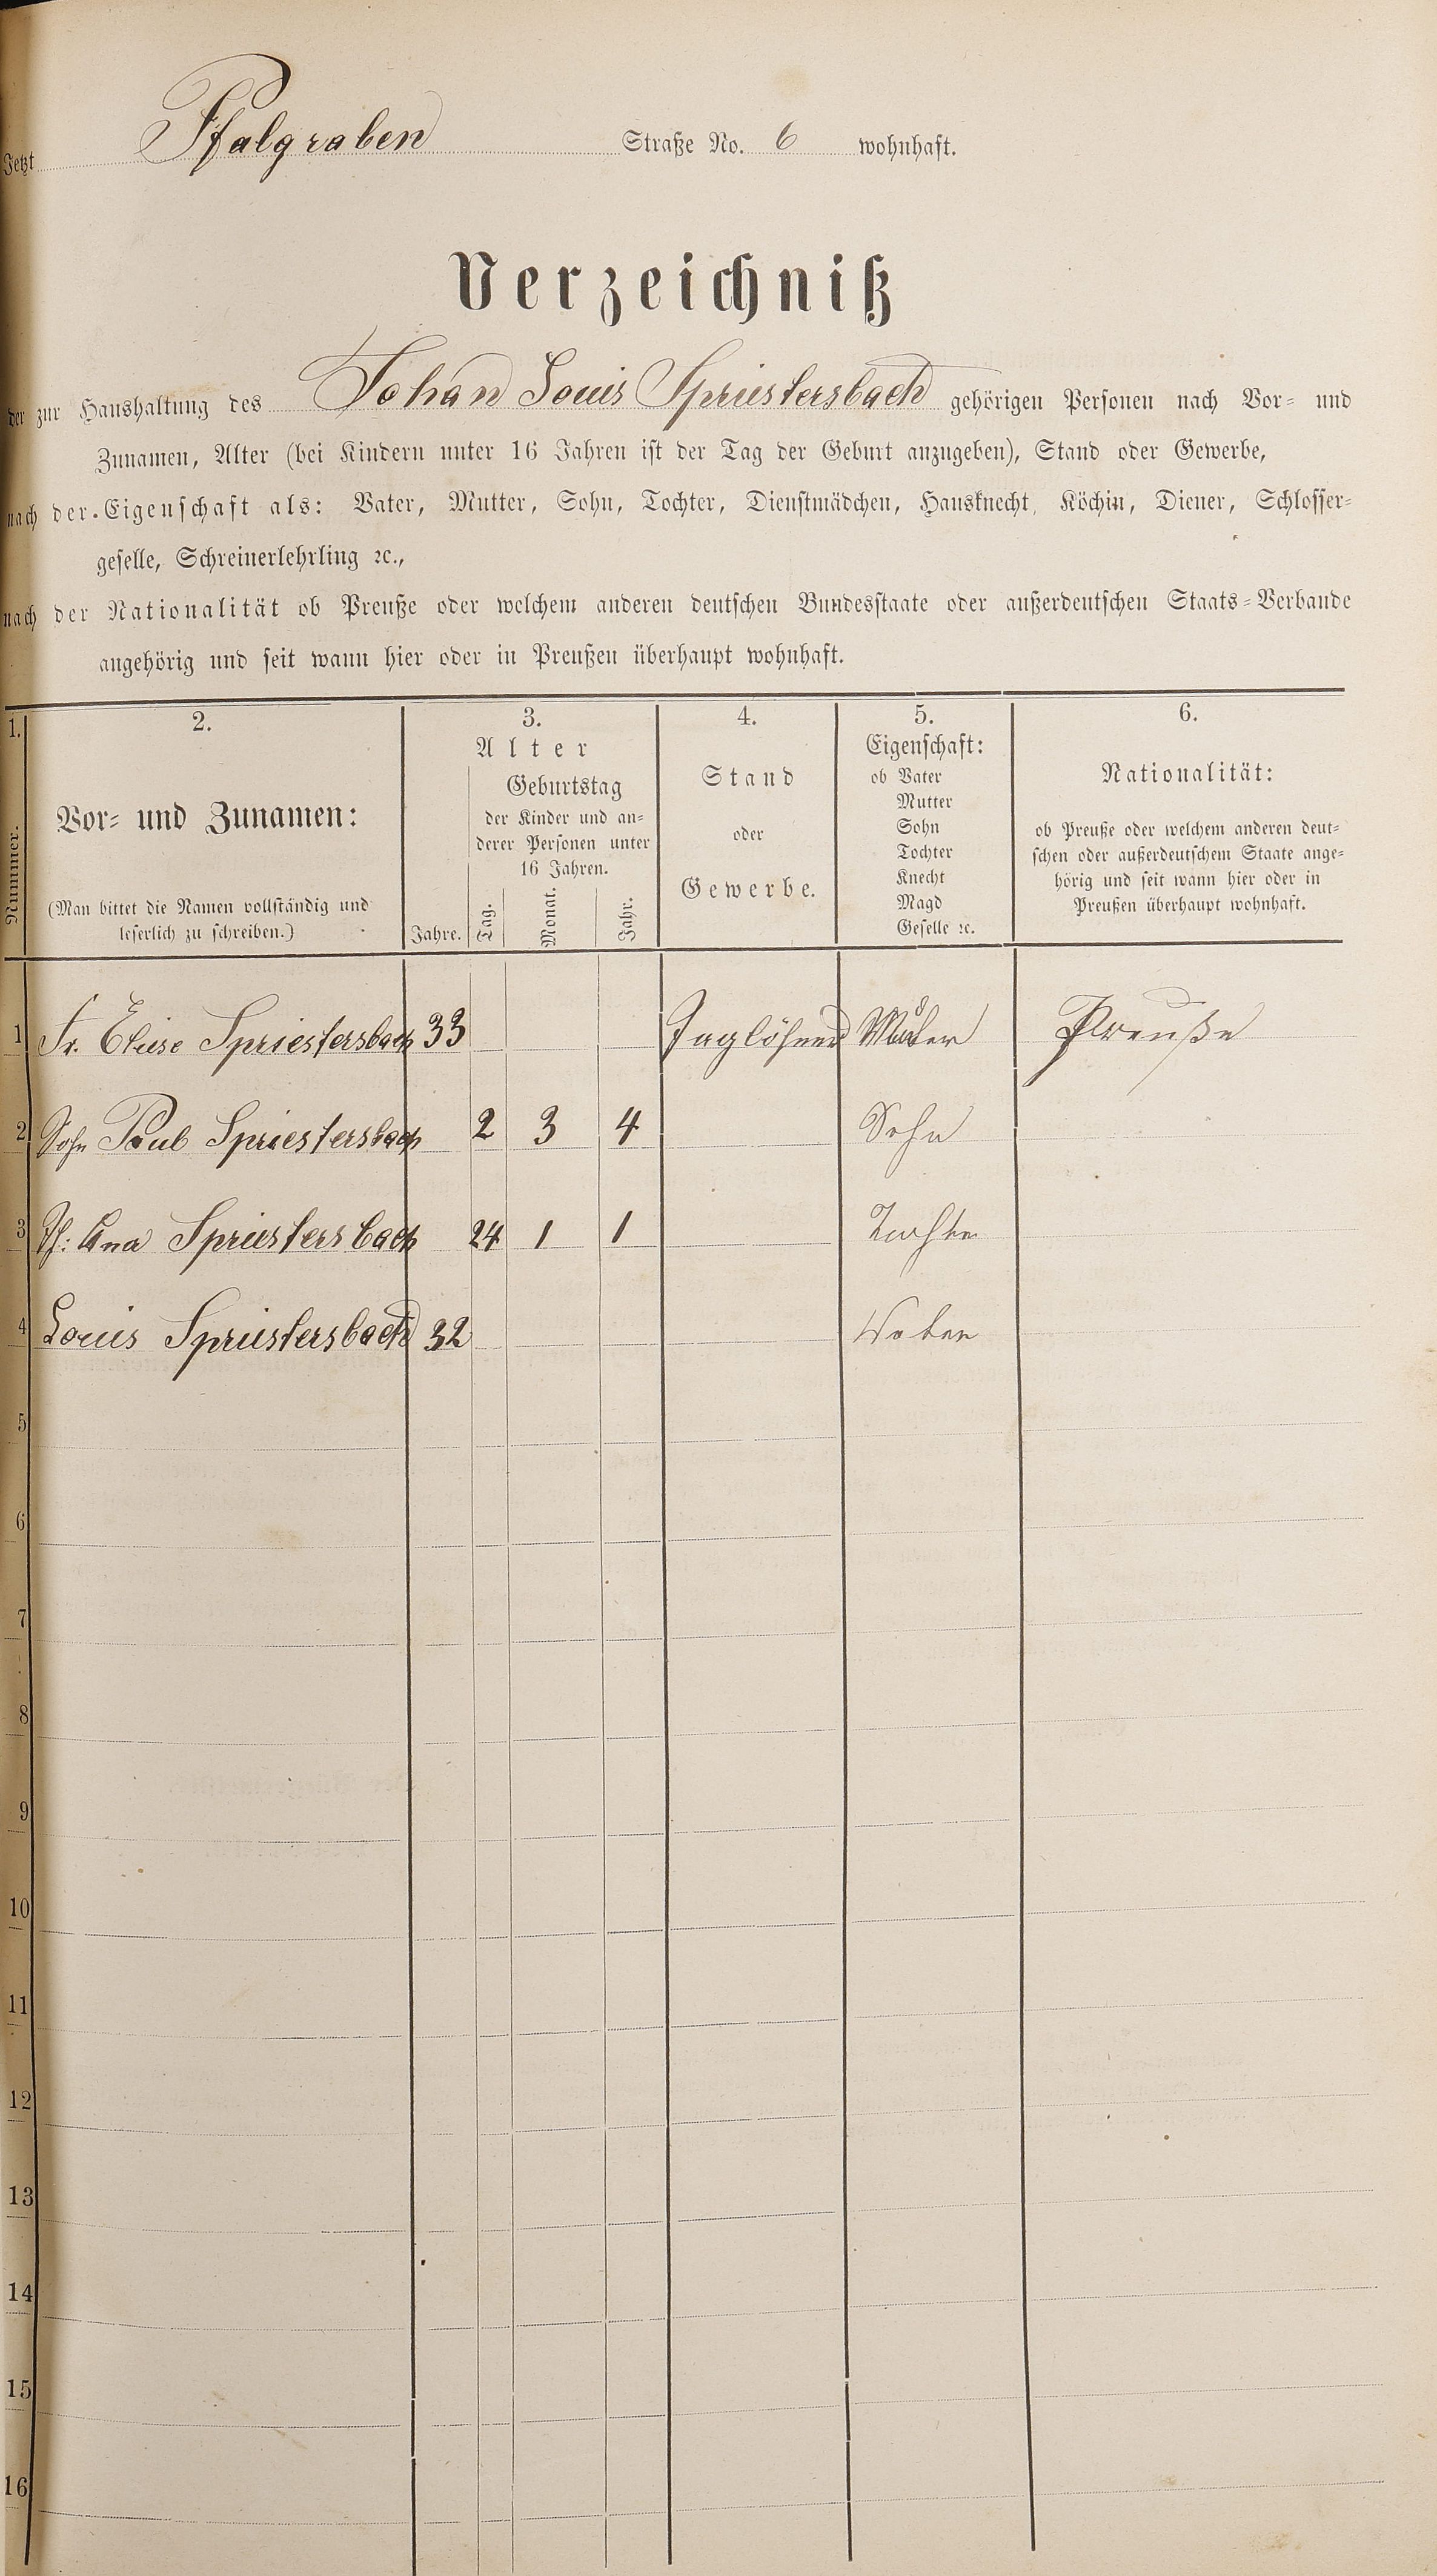 Jetzt Pfalgraben Straße No. 6 wohnhaft.
Verzeichniß
der zur Haushaltung des Johan Louis Spriestersbach gehörigen Personen nach Vor- und
Zunamen, Alter (bei Kindern unter 16 Jahren ist der Tag der Geburt anzugeben), Stand oder Gewerbe,
nach der Eigenschaft als: Vater, Mutter, Sohn, Tochter, Dienstmädchen, Hausknecht, Köchin, Diener, Schlosser-
geselle, Schreinerlehrling ꝛc.,
nach der Nationalität ob Preuße oder welchem anderen deutschen Bundesstaate oder außerdeutschen Staats-Verbande
angehörig und seit wann hier oder in Preußen überhaupt wohnhaft.
1. 2. 3. 4. 5. 6.
Nummer.
Vor- und Zunamen:
(Man bittet die Namen vollständig und
leserlich zu schreiben.)
Alter
Jahre.
Geburtstag
der Kinder und an-
derer Personen unter
16 Jahren.
Tag. Monat. Jahr.
Stand
oder
Gewerbe.
Eigenschaft:
ob Vater
Mutter
Sohn
Tochter
Knecht
Magd
Geselle ꝛc.
Nationalität:
ob Preuße oder welchem anderen deut-
schen oder außerdeutschem Staate ange-
hörig und seit wann hier oder in
Preußen überhaupt wohnhaft.
1 Fr. Eliese Spriestersbach 33 Taglöhner Muter Preuße
2 Sohn Paul Spriestersbach 2 3 4 Sohn
3 Ana Spriestersbach 24 1 1 Tochter
4 Louis Spriestersbach 32 Vater
5
6
7
8
9
10
11
12
13
14
15
16